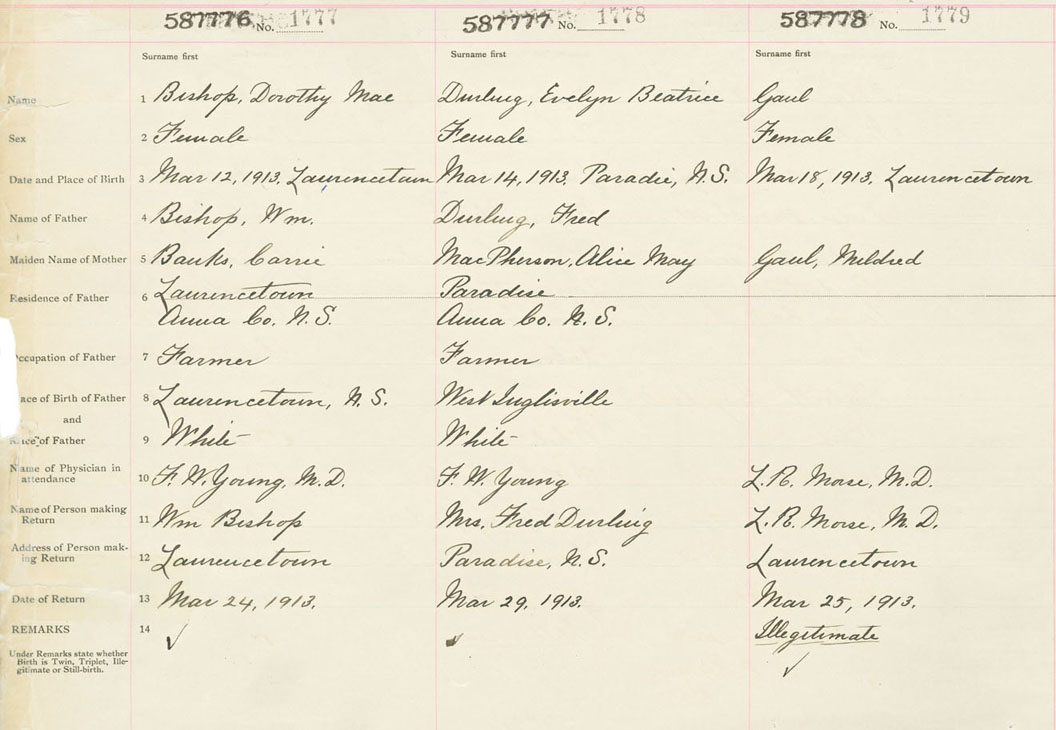 587776 No. 1777 587777 No. 1778 587778 No. 1779
Surname first Surname first Surname first
Name 1 Bishop, Dorothy Mae Durling, Evelyn Beatrice Gaul
Sex 2 Female Female Female
Date and Place of Birth 3 Mar 12, 1913, Laurencetown Mar 14, 1913. Paradie, N.S. Mar 18, 1913. Laurencetown
Name of Father 4 Bishop, Wm. Durling, Fred
Maiden Name of Mother 5 Banks, Carrie MacPherson, Alice May Gaul, Mildred
Residence of Father 6 Laurencetown Paradise
Anna Co. N.S. Anna Co. N.S.
ccupation of Father 7 Farmer Farmer
ace of Birth of Father 8 Laurencetown, N.S. West Inglisville
and
Race of Father 9 White White
Name of Physician in
attendance 10 F. W. Young, M.D. F. W. Young L. R. Morse, M.D.
Name of Person making
Return 11 Wm Bishop Mrs. Fred Durling L. R. Morse, M.D.
Address of Person mak-
ing Return 12 Laurencetown Paradise, N.S. Laurencetown
Date of Return 13 Mar 24, 1913. Mar 29, 1913. Mar 25, 1913.
REMARKS 14 Illegitimate
Under Remarks state whether
Birth is Twin, Triplet, Ille-
gitimate or Still-birth.